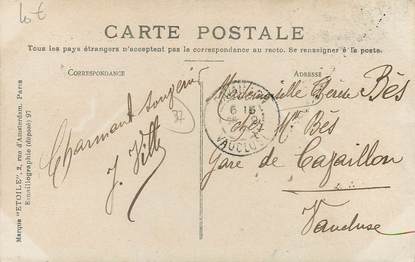 10€
CARTE POSTALE
Tous les pays étrangers n'acceptent pas la correspondance au recto. Se renseigner à la poste.
CORRESPONDANCE
ADRESSE
Marque "ETOILE", 2, rue d'Amsterdam, Paris
Emaillographie (déposé) 97
Charmant
J. Ville
37
VAUCLUSE
Mademoiselle Bès
chez Mr Bès
Gare de Cavaillon
Vaucluse